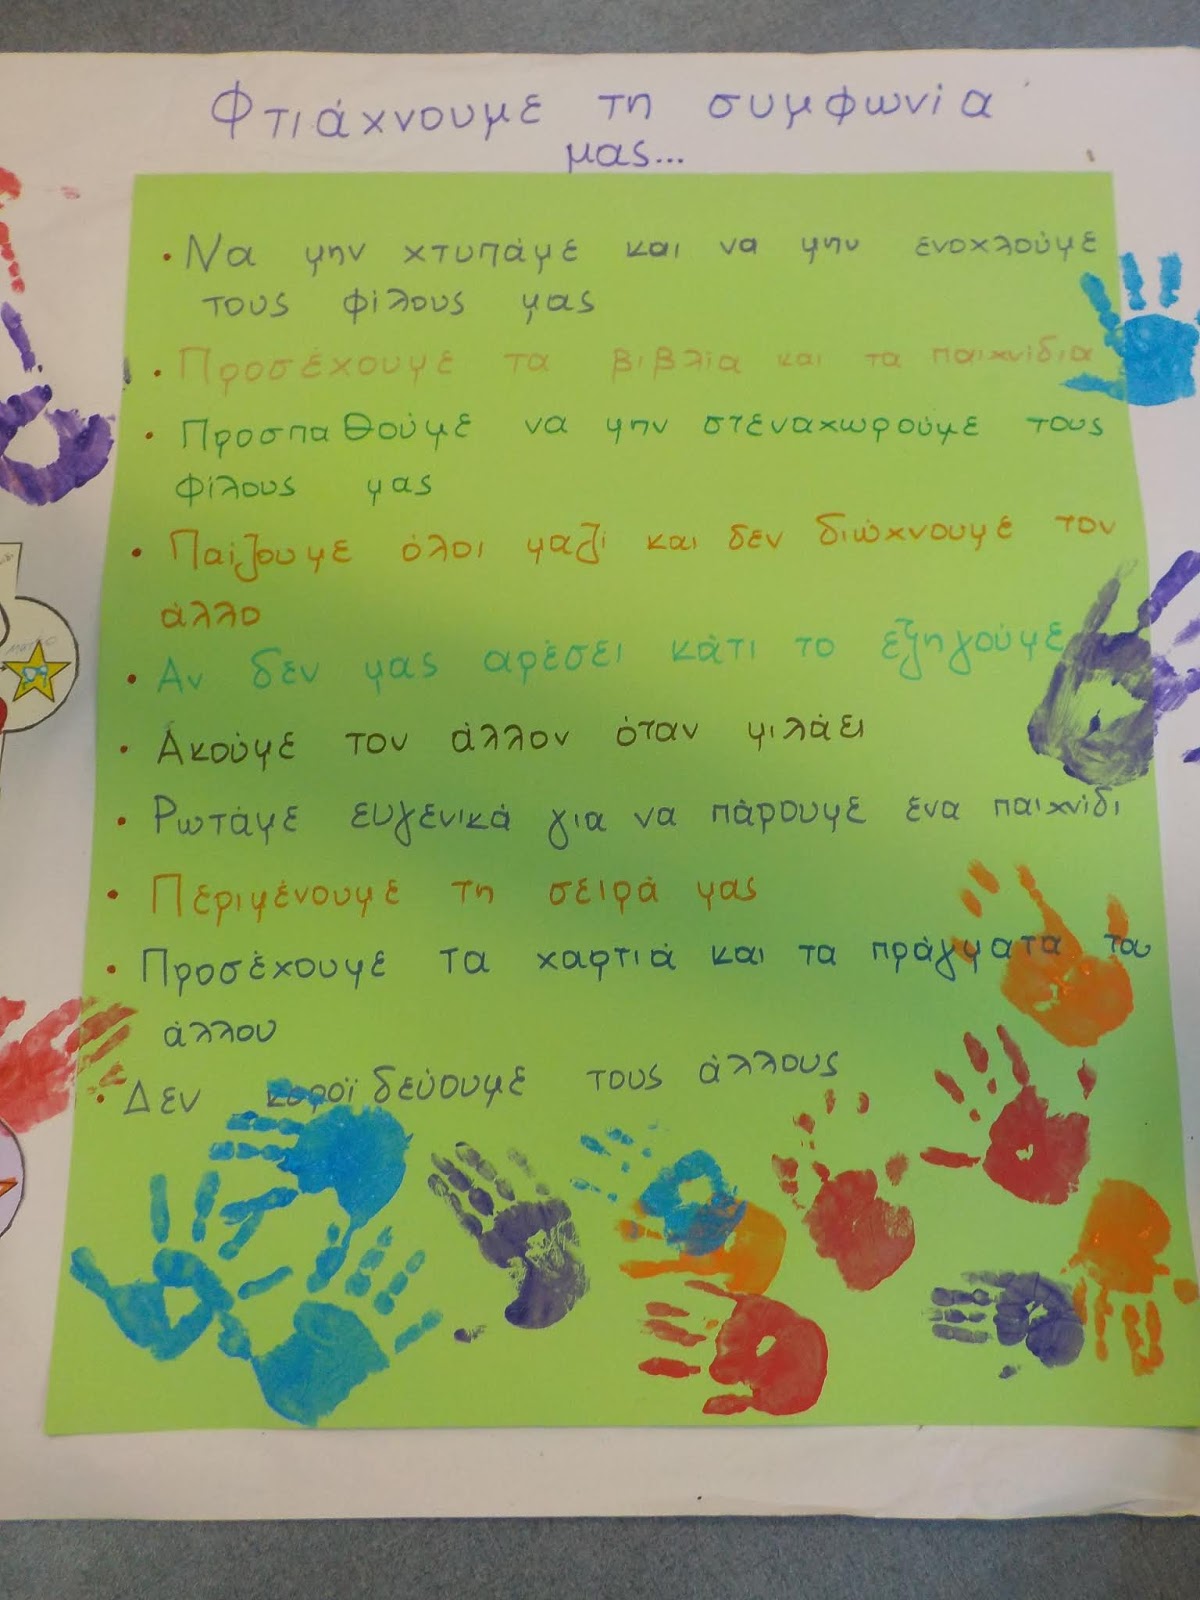 Φτιάχνουμε τη συμφωνία
μας...
• Να μην χτυπάμε και να μην ενοχλούμε
τους φίλους μας
• Προσέχουμε τα βιβλία και τα παιχνίδια
• Προσπαθούμε να μην στεναχωρούμε τους
φίλους μας
• Παίζουμε όλοι μαζί και δεν διώχνουμε τον
άλλο
• Αν δεν μας αρέσει κάτι το εξηγούμε
• Ακούμε τον άλλον όταν μιλάει
• Ρωτάμε ευγενικά για να πάρουμε ένα παιχνίδι
• Περιμένουμε τη σειρά μας
• Προσέχουμε τα χαρτιά και τα πράγματα του
άλλου
• Δεν κοροϊδεύουμε τους άλλους